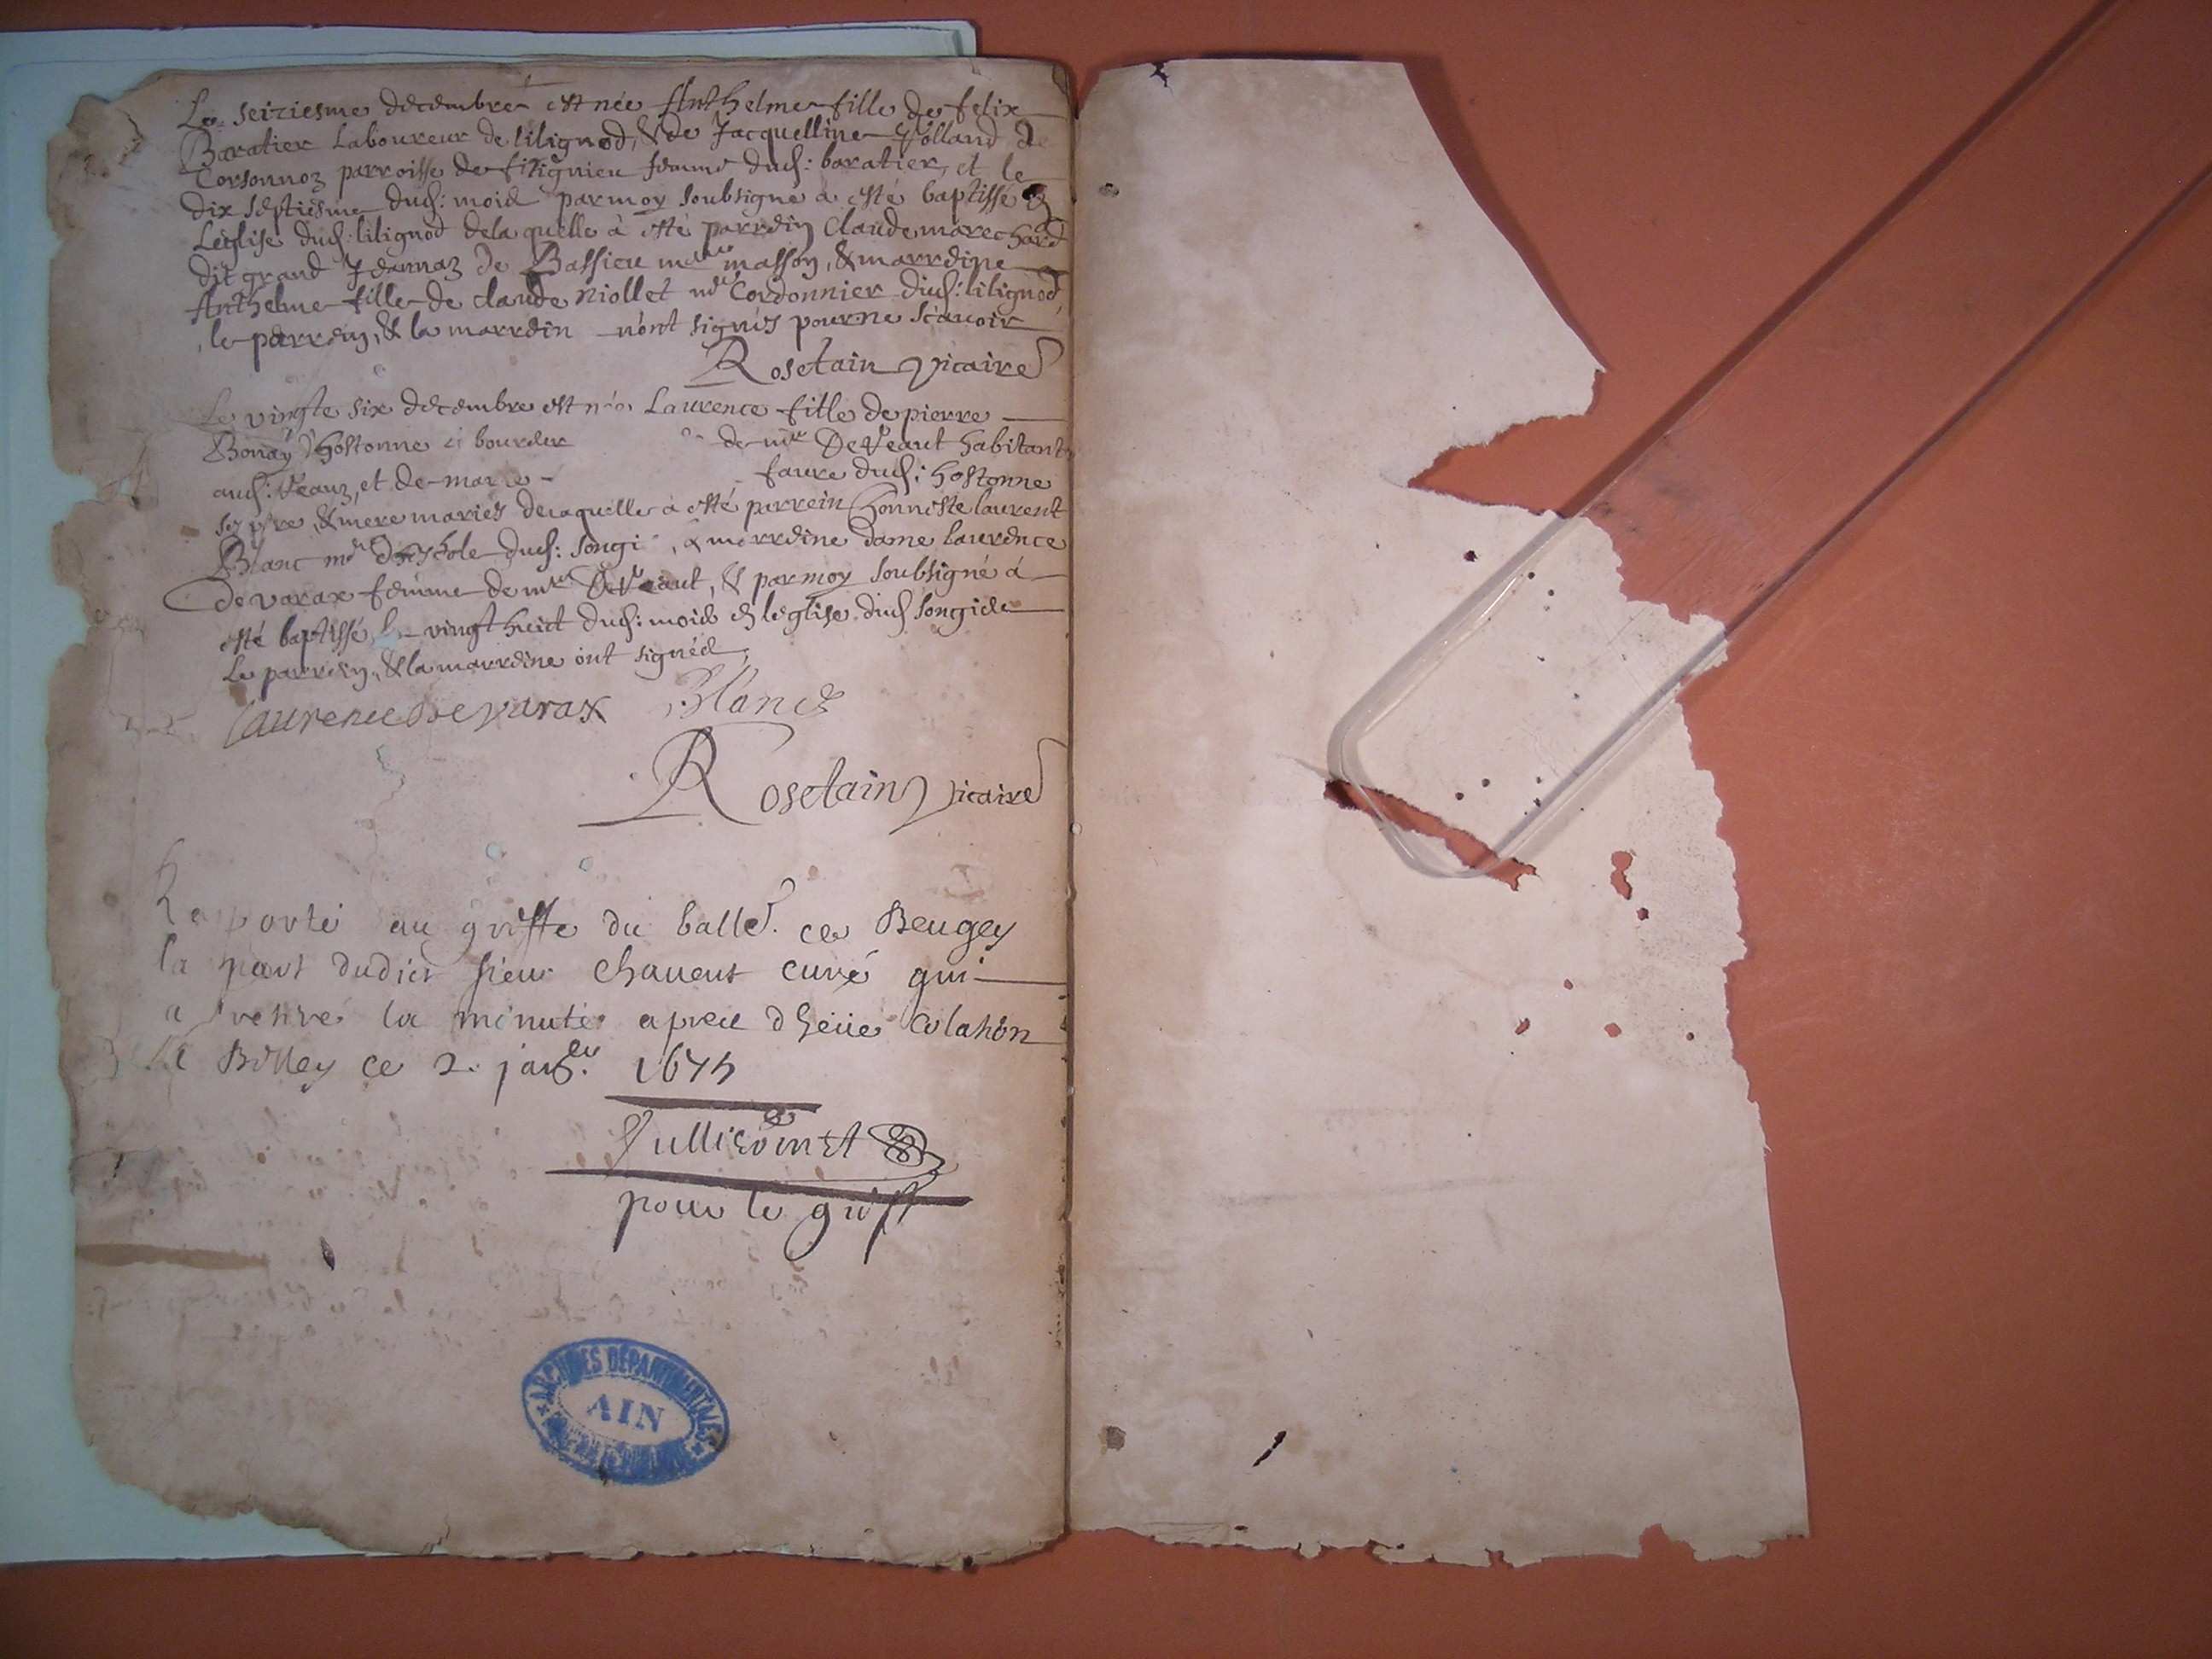 Le seiziesme decembre est née Anthelme fille de felix
Baratier Laboureur de lilignod, & de Jacquelline Yolland de
Corsonnoz parroisse de fitignieu femme dud: baratier, et le
dix septiesme dud: mois par moy soubsigné a esté baptissé en
Leglise dud: lilignod de laquelle à esté parrein Claude marechard
dit grand Jeannaz de Bassieu me masson, & marreine
Anthelme fille de claude Niollet me Cordonnier dud: lilignod,
le parrein, & la marrein n'ont signés pour ne sçavoir
Rosetain vicaire
Le vingte six decembre est née Laurence fille de pierre
Bonay d'hostonne de mr DeVeaut habitant
aud: Veaux, et de marie faure dud: hostonne
ses pere, & mere mariés de laquelle à esté parrein honneste laurent
Blanc me d'eschole dud: songi, & marreine dame laurence
De varax femme de mr DeVeaut, & par moy soubsigné à
esté baptissé le vingt huict dud: mois en leglise dud songieu
Le parrein, & la marreine ont signés,
Laurence De varax Blanc
Rosetain vicaire
Raporté au greffe du balle. de Beugey
la part dudict sieur chauent curé qui
a retiré la minute apres dheüe Colation
Belley ce 2. janer. 1675
pour le greff
ARCHIVES DÉPARTEMENTALES
AIN